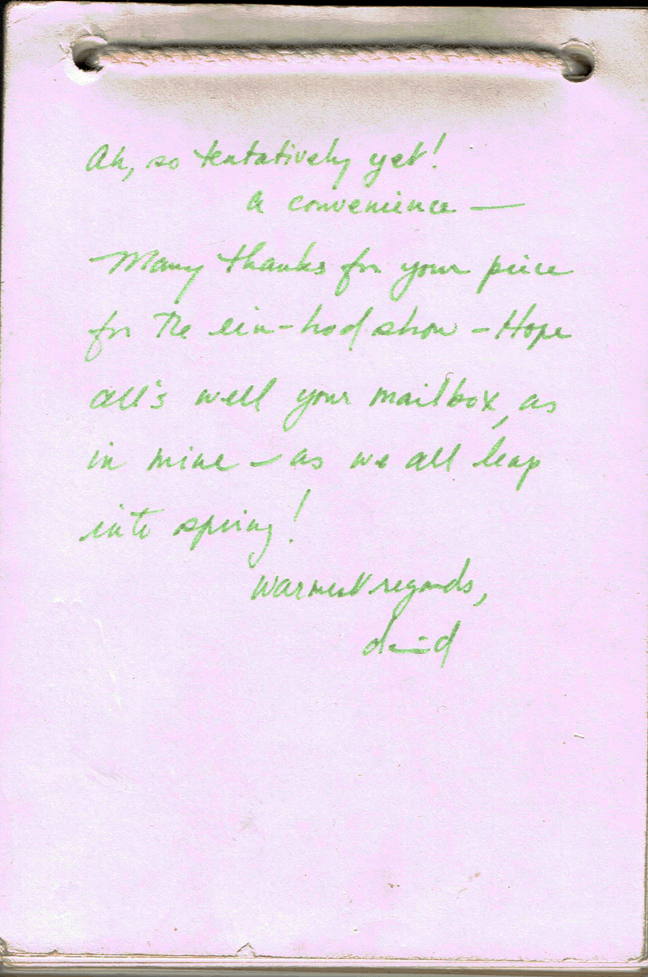 Ah, so tentatively yet!
a convenience —
Many thanks for your piece
for the ein-hod show – Hope
all's well your mailbox, as
in mine – as we all leap
into spring!
Warmest regards,
david